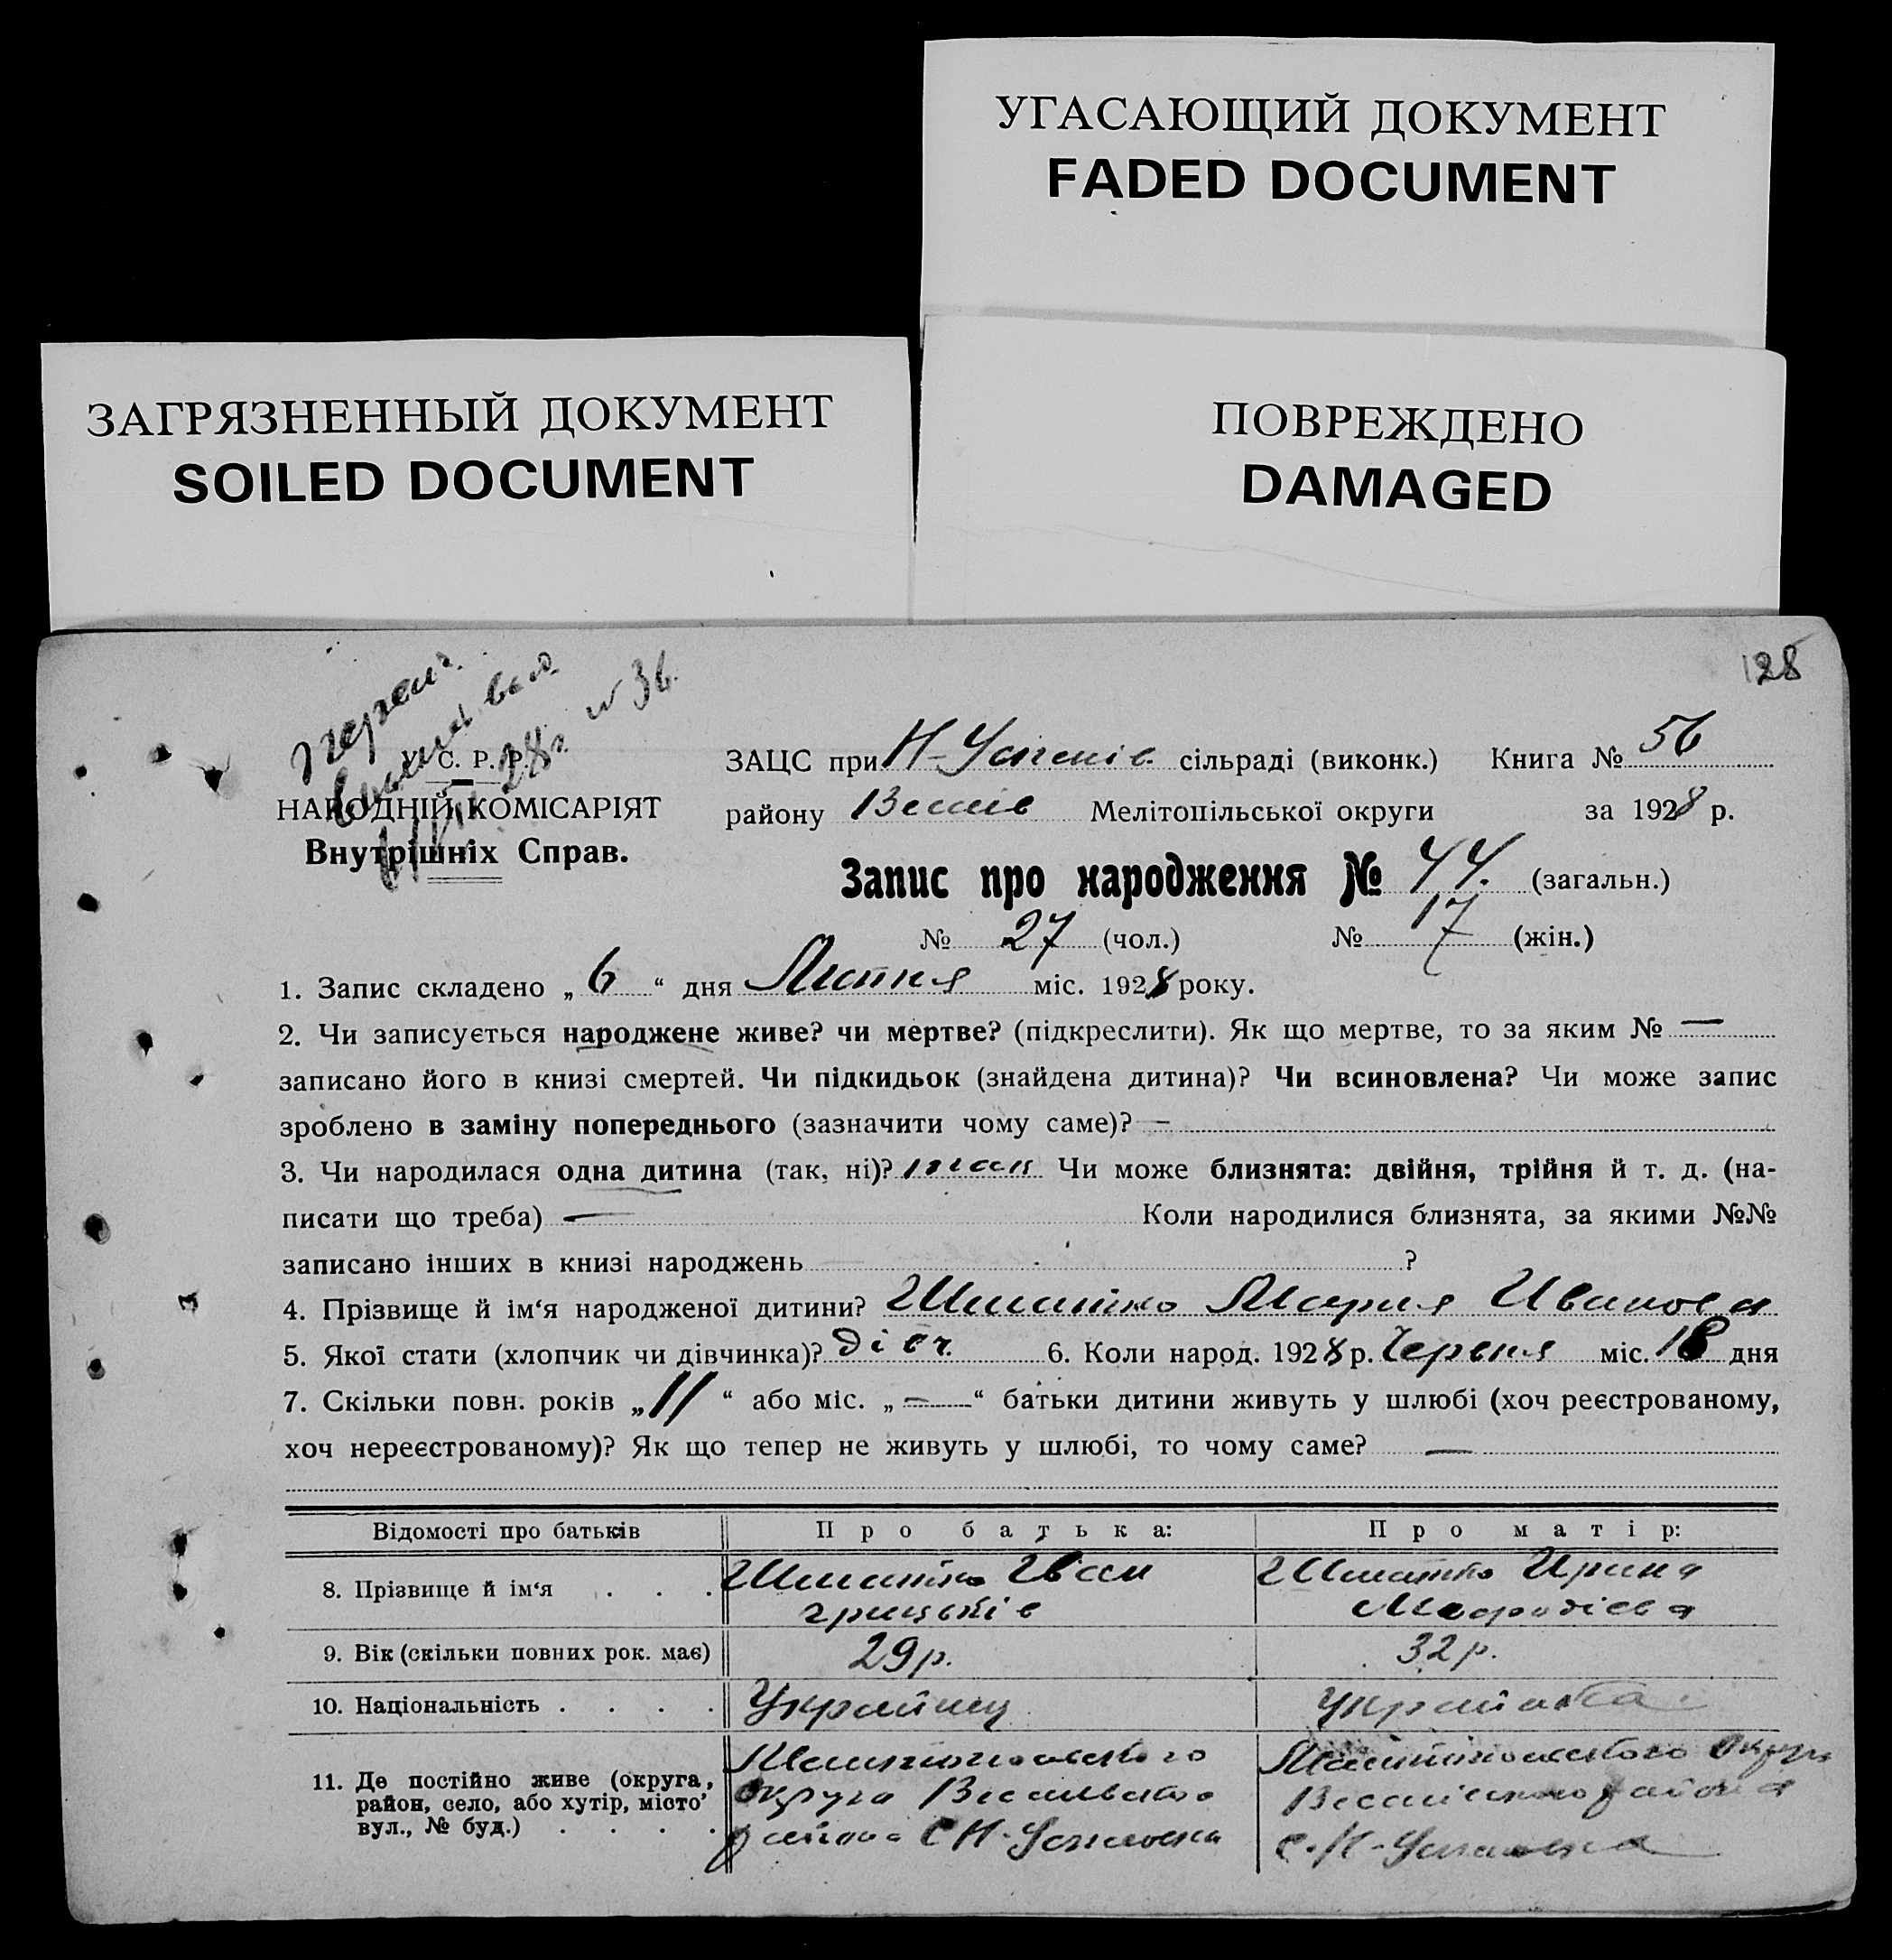 УГАСАЮЩИЙ ДОКУМЕНТ
FADED DOCUMENT
ЗАГРЯЗНЕННЫЙ ДОКУМЕНТ
SOILED DOCUMENT
ПОВРЕЖДЕНО
DAMAGED
128
28г. № 36.
У. С. Р. Р.
НАРОДНІЙ КОМІСАРІЯТ
Внутрішніх Справ.
ЗАЦС при Н-Успенів. сільраді (виконк.) Книга № 56
району Весел Мелітопільської округи за 1928 р.
Запис про народження № 44. (загальн.)
№ 27 (чол.) № 17 (жін.)
1. Запис складено „6“ дня Липня міс. 1928 року.
2. Чи записується народжене живе? чи мертве? (підкреслити). Як що мертве, то за яким № —
записано його в книзі смертей. Чи підкидьок (знайдена дитина)? Чи всиновлена? Чи може запис
зроблено в заміну попереднього (зазначити чому саме)? —
3. Чи народилася одна дитина (так, ні)? так Чи може близнята: двійня, трійня й т. д. (на-
писати що треба) — Коли народилися близнята, за якими №№
записано інших в книзі народжень ?
4. Прізвище й ім‘я народженої дитини? Шматко Мария Иванова
5. Якої стати (хлопчик чи дівчинка)? дівч. 6. Коли народ. 1928 р. Червня міс. 18 дня
7. Скільки повн. років „11“ або міс. „—“ батьки дитини живуть у шлюбі (хоч реєстрованому,
хоч нереєстрованому)? Як що тепер не живуть у шлюбі, то чому саме? —
Відомості про батьків Про батька: Про матір:
8. Прізвище й ім‘я . . . Шматко Иван Шматко Ирина
грицьків Мефодіева
9. Вік (скільки повних рок. має) 29 р. 32 р.
10. Національність . . . . Українец Українка
Мелитопольского Мелитопольского Округа
11. Де постійно живе (округа, округа Весельского Веселівского района
район, село, або хутір, місто, района С Н-Успеновка с. Н-Успеновка
вул., № буд.) . . . .